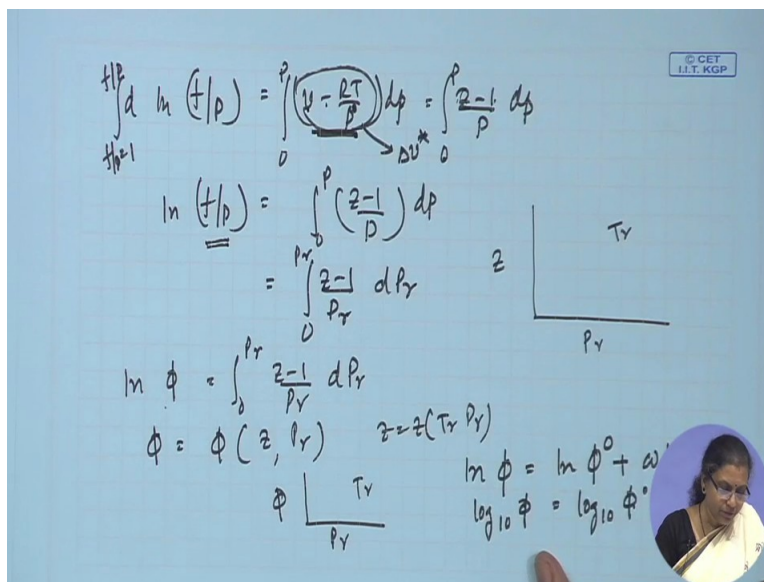 © CET
I.I.T. KGP
∫_{f/p=1}^{f/p} d ln (f/p) = ∫_0^P (v - RT/p) dp = ∫_0^P (z-1)/p dp
Δv*
ln (f/p) = ∫_0^P ((z-1)/p) dp
= ∫_0^{Pr} (z-1)/Pr dPr
z
Tr
Pr
ln ϕ = ∫_0^{Pr} (z-1)/Pr dPr
ϕ = ϕ (z, Pr)
z = z(Tr Pr)
ϕ
Tr
Pr
ln ϕ = ln ϕ⁰ + ω
log₁₀ ϕ = log₁₀ ϕ⁰